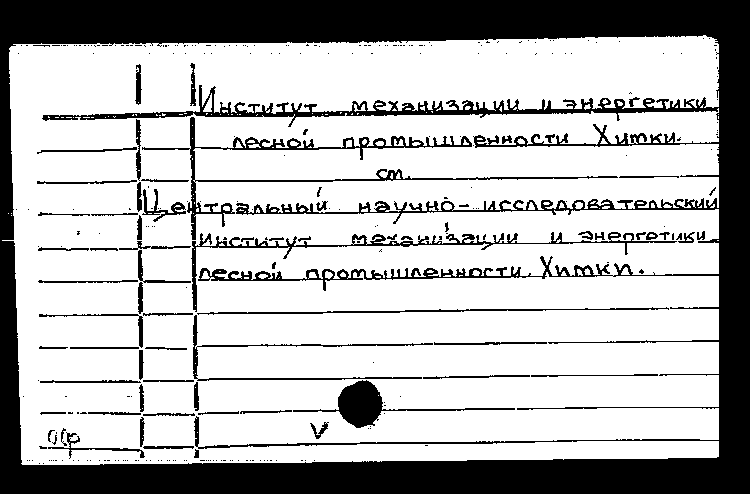 Институт механизации и энергетики
лесной промышленности Химки.
см.
Центральный научно-исследовательский
институт механизации и энергетики
лесной промышленности. Химки.
V